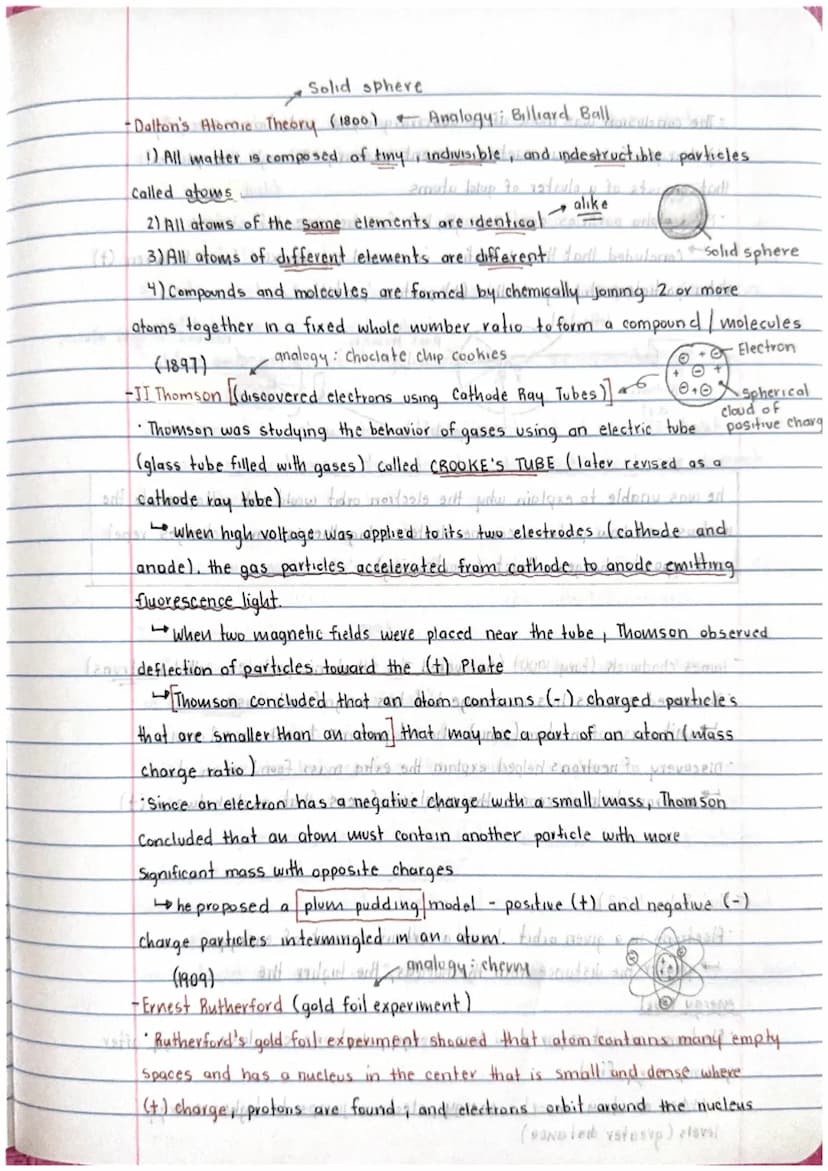 Solid sphere
- Dalton's Atomic Theory (1800) ← Analogy: Billiard Ball
1) All matter is composed of tiny, indivisible, and indestructible particles
called atoms.
alike
2) All atoms of the same elements are identical
3) All atoms of different elements are different
solid sphere
4) Compounds and molecules are formed by chemically joining 2 or more
atoms together in a fixed whole number ratio to form a compound / molecules
(1897) analogy: choclate chip cookies
Electron
- JJ Thomson [(discovered electrons using Cathode Ray Tubes)]
spherical
cloud of
positive charg
• Thomson was studying the behavior of gases using an electric tube
(glass tube filled with gases) called CROOKE'S TUBE (later revised as a
cathode ray tobe)
↳ when high voltage was applied to its two electrodes (cathode and
anode), the gas particles accelerated from cathode to anode emitting
fluorescence light.
↳ When two magnetic fields weve placed near the tube, Thomson observed
deflection of particles toward the (+) Plate
↳ [Thomson concluded that an atom contains (-) charged particles
that are smaller than an atom] that may be a part of an atom (Mass
charge ratio)
• Since an electron has a negative charge with a small mass, Thomson
concluded that an atom must contain another particle with more
significant mass with opposite charges
↳ he proposed a plum pudding model - positive (+) and negative (-)
charge particles intermingled in an atom.
(1909) analogy: cherry
- Ernest Rutherford (gold foil experiment)
• Rutherford's gold foil experiment showed that atom contains many empty
spaces and has a nucleus in the center that is small and dense where
(+) charge, protons are found, and electrons orbit around the nucleus